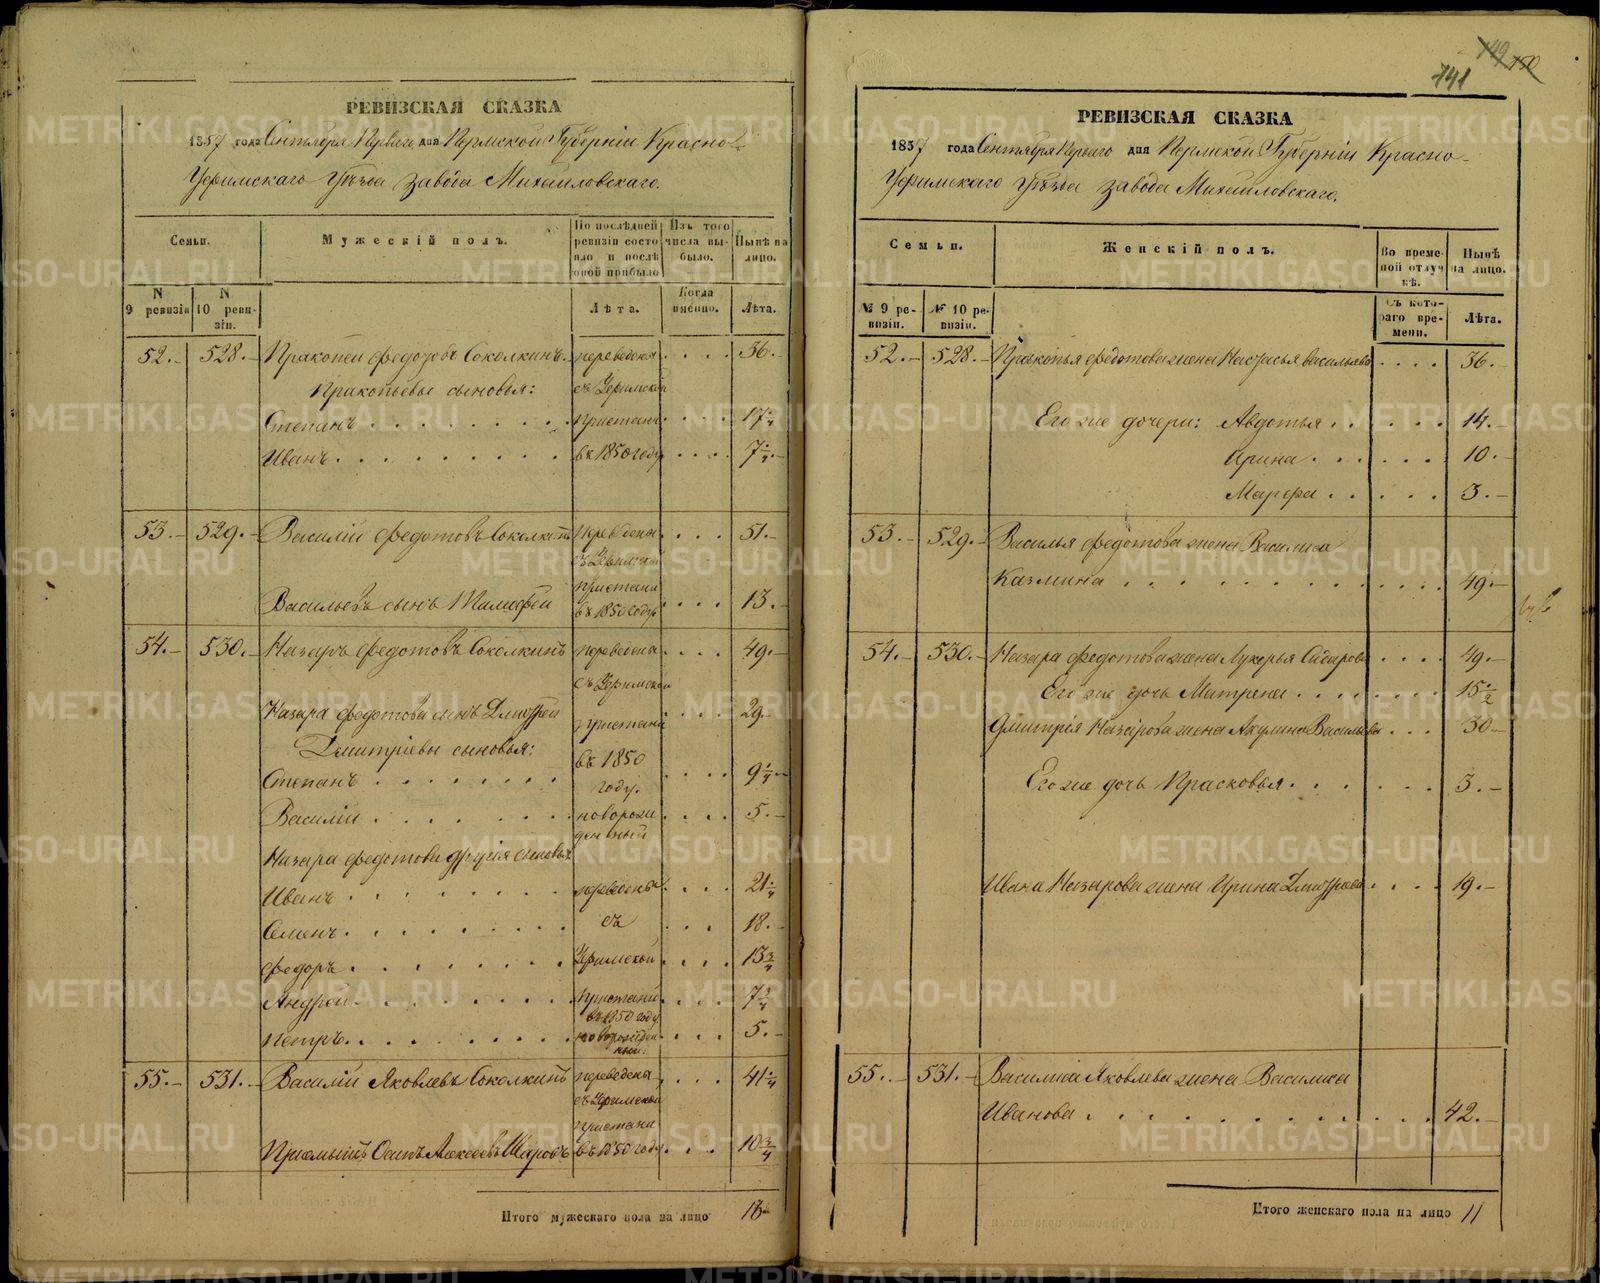 РЕВИЗСКАЯ СКАЗКА
1857 года Сентября Перваго дня Пермской Губерніи Красно-
Уфимскаго Уѣзда завода Михайловскаго.
Семьи.
Мужескій полъ.
По послѣдней ревизіи состояло и послѣ оной прибыло
Изъ того числа выбыло.
Нынѣ на лицо.
N 9 ревизіи
N 10 ревизіи.
Лѣта.
Когда именно.
Лѣта.
52.- 528.- Пракопей Федотовъ Соколкинъ. переведены 36.-
Пракопьевы сыновья: съ Уфимской
Степанъ пристани 17 1/4
Иванъ въ 1850 году 7 1/4
53.- 529.- Василій Федотовъ Соколкинъ переведены 51.-
съ Уфимской
пристани
Васильевъ сынъ Тимофей въ 1850 году 13.-
54.- 530.- Назаръ Федотовъ Соколкинъ переведены 49.-
съ Уфимской
Назара Федотова сынъ Дмитрей пристани 29.-
Дмитріевы сыновья: въ 1850
Степанъ году. 9 1/4
Василій новорожденный 5.-
Назара Федотова другія сыновья
Иванъ переведены 21 1/4
Семенъ съ 18.-
Федоръ Уфимской 13 3/4
Андрей пристани 7 3/4
въ 1850 году
Петръ новорожденный. 5.-
55.- 531.- Василій Яковлевъ Соколкинъ переведены 41 1/4
съ Уфимской
пристани
Приемышъ Осипъ Алексеевъ Шаровъ въ 1850 году 10 3/4
Итого мужескаго пола на лицо 16
149 150
141
РЕВИЗСКАЯ СКАЗКА
1857 года Сентября Перваго дня Пермской Губерніи Красно-
Уфимскаго Уѣзда завода Михайловскаго.
Семьи.
Женскій полъ.
Во временной отлучкѣ.
Нынѣ на лицо.
№ 9 ревизіи.
№ 10 ревизіи.
Съ котораго времени.
Лѣта.
52.- 528.- Пракопья Федотова жена Настасья Васильева 36.-
Его же дочери: Авдотья 14.-
Ирина 10.-
Марфа 3.-
53.- 529.- Василья Федотова жена Василиса
Казмина 49.-
54.- 530.- Назара Федотова жена Лукерья Сидорова 49.-
Его же дочь Матрена 15 1/2
Дмитрія Назарова жена Акулина Васильева 30-
Его же дочь Прасковья 3.-
Ивана Назарова жена Ирина Дмитриева 19.-
55.- 531.- Василия Яковлева жена Василиса
Иванова 42.-
Итого женскаго пола на лицо 11
METRIKI.GASO-URAL.RU